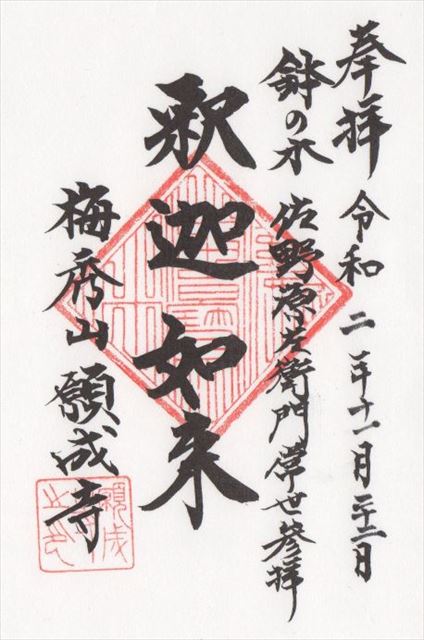 奉拝 令和二年十一月二十二日
鉢の木 佐野源左衛門常世参拝
釈迦如来
梅秀山 願成寺